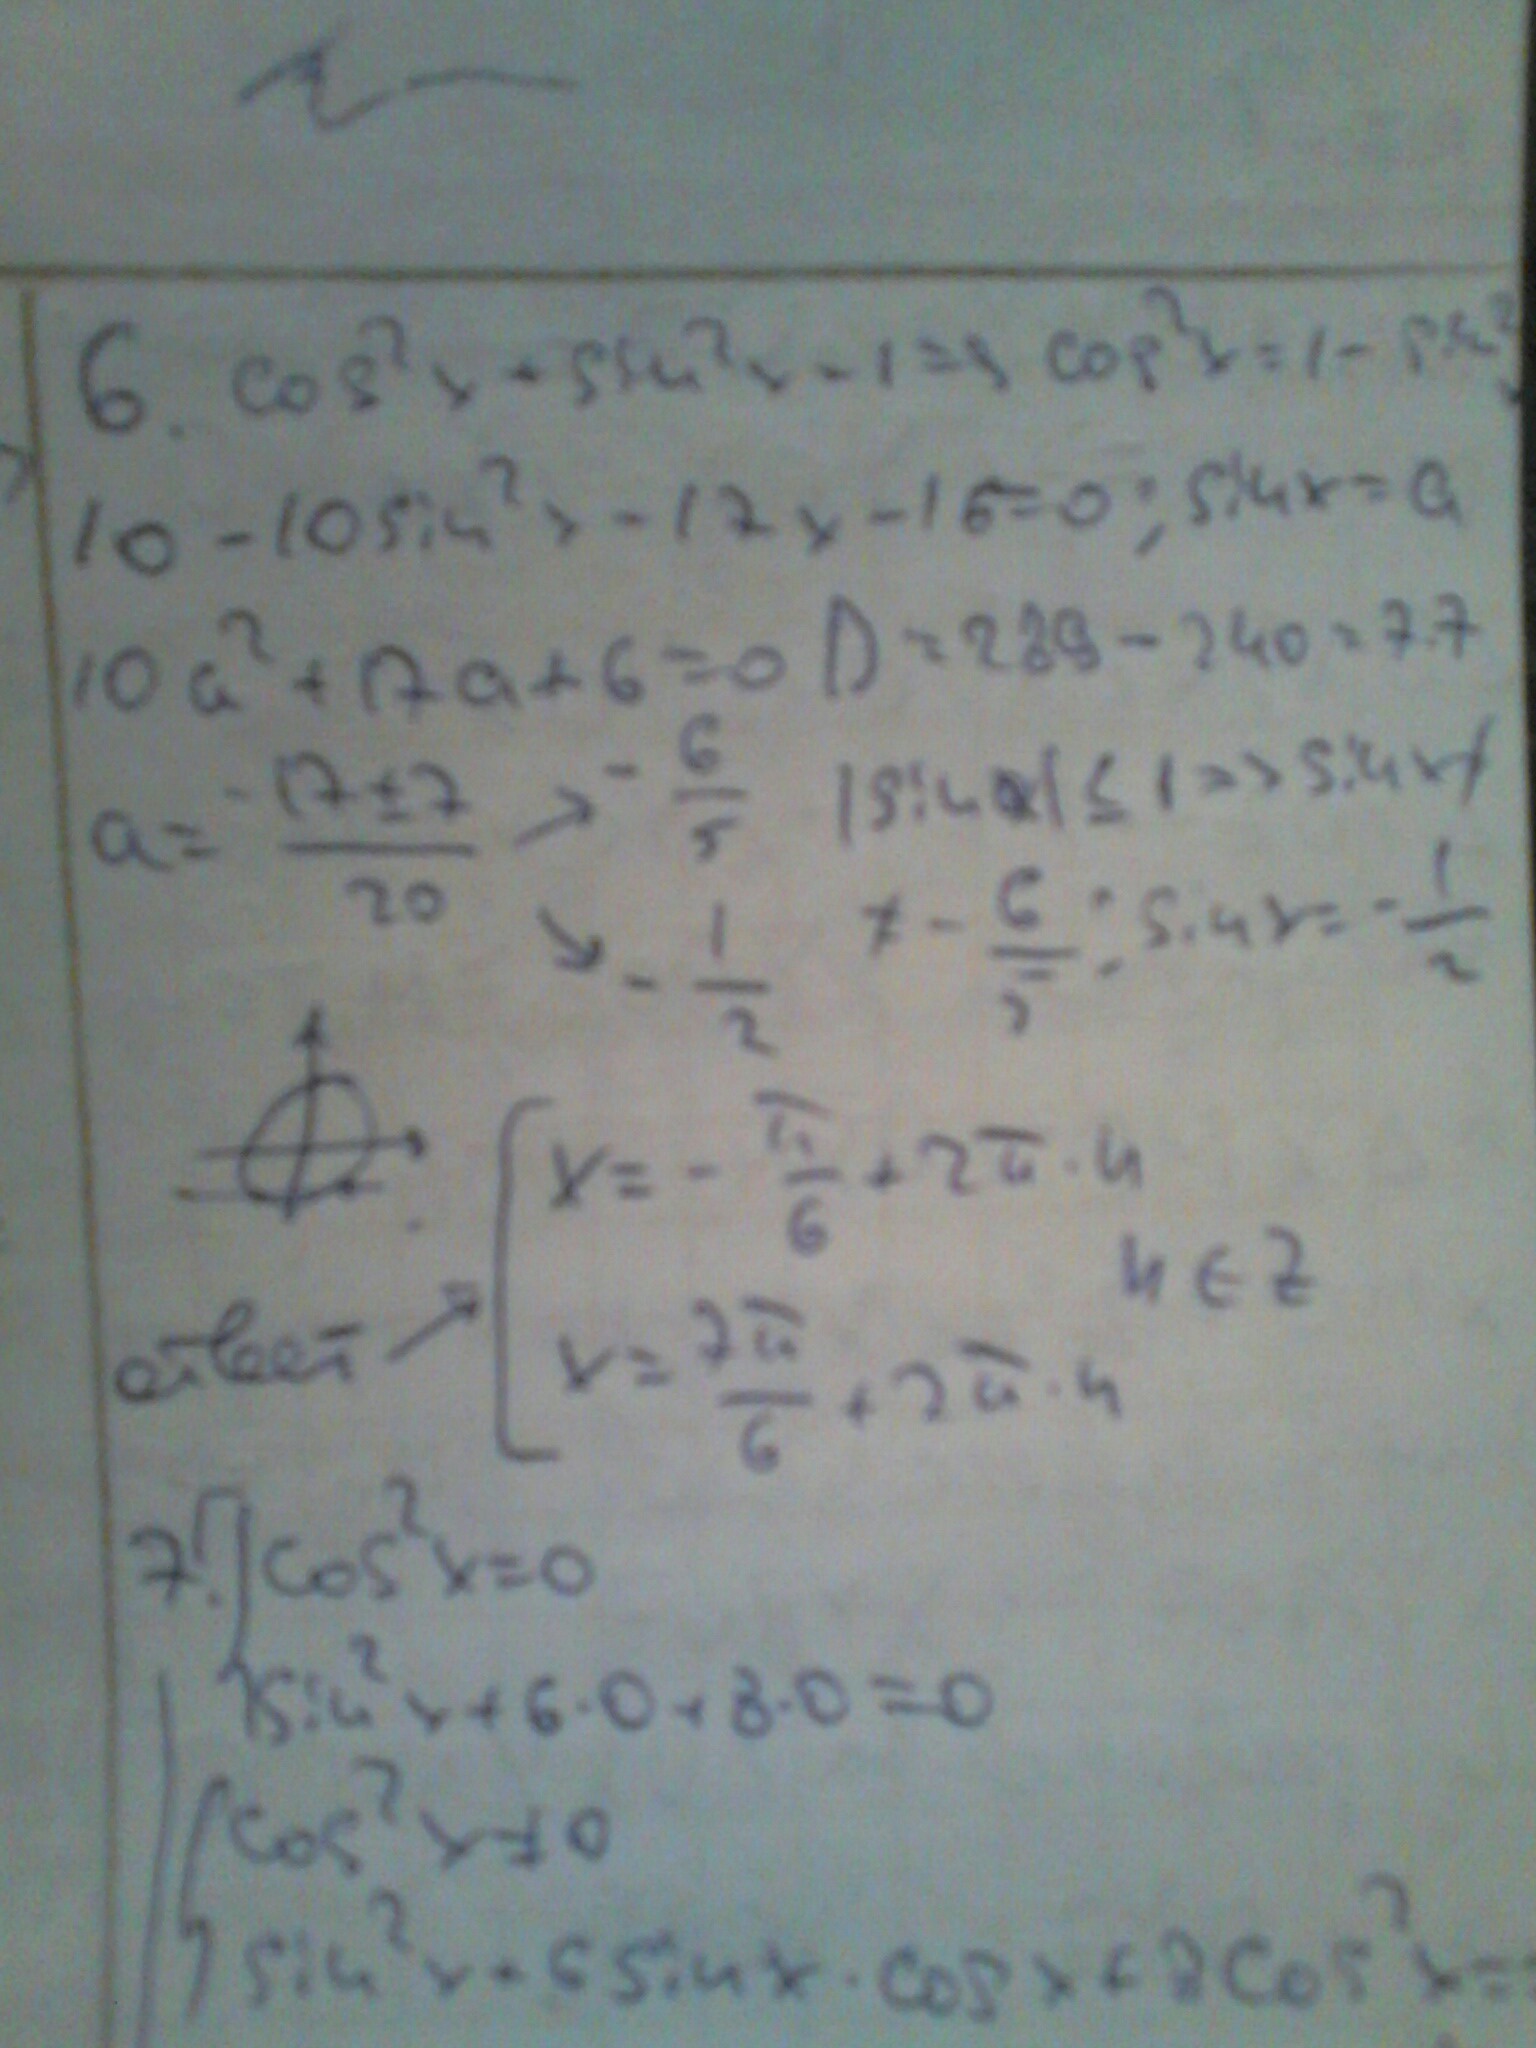 6. cos²x + sin²x = 1 => cos²x = 1 - sin²x
10 - 10sin²x - 17x - 16 = 0 ; sinx = a
10a² + 17a + 6 = 0 D = 289 - 240 = 7·7
a = (-17 ± 7)/20 → -6/5 |sinx| ≤ 1 => sinx ≠
↘ -1/2 ≠ -6/5 ; sinx = -1/2
x = -π/6 + 2π·n
n ∈ Z
ответ → x = 7π/6 + 2π·n
7. cos²x = 0
sin²x + 6·0 + 8·0 = 0
cos²x ≠ 0
sin²x + 6sinx·cosx + 8cos²x =